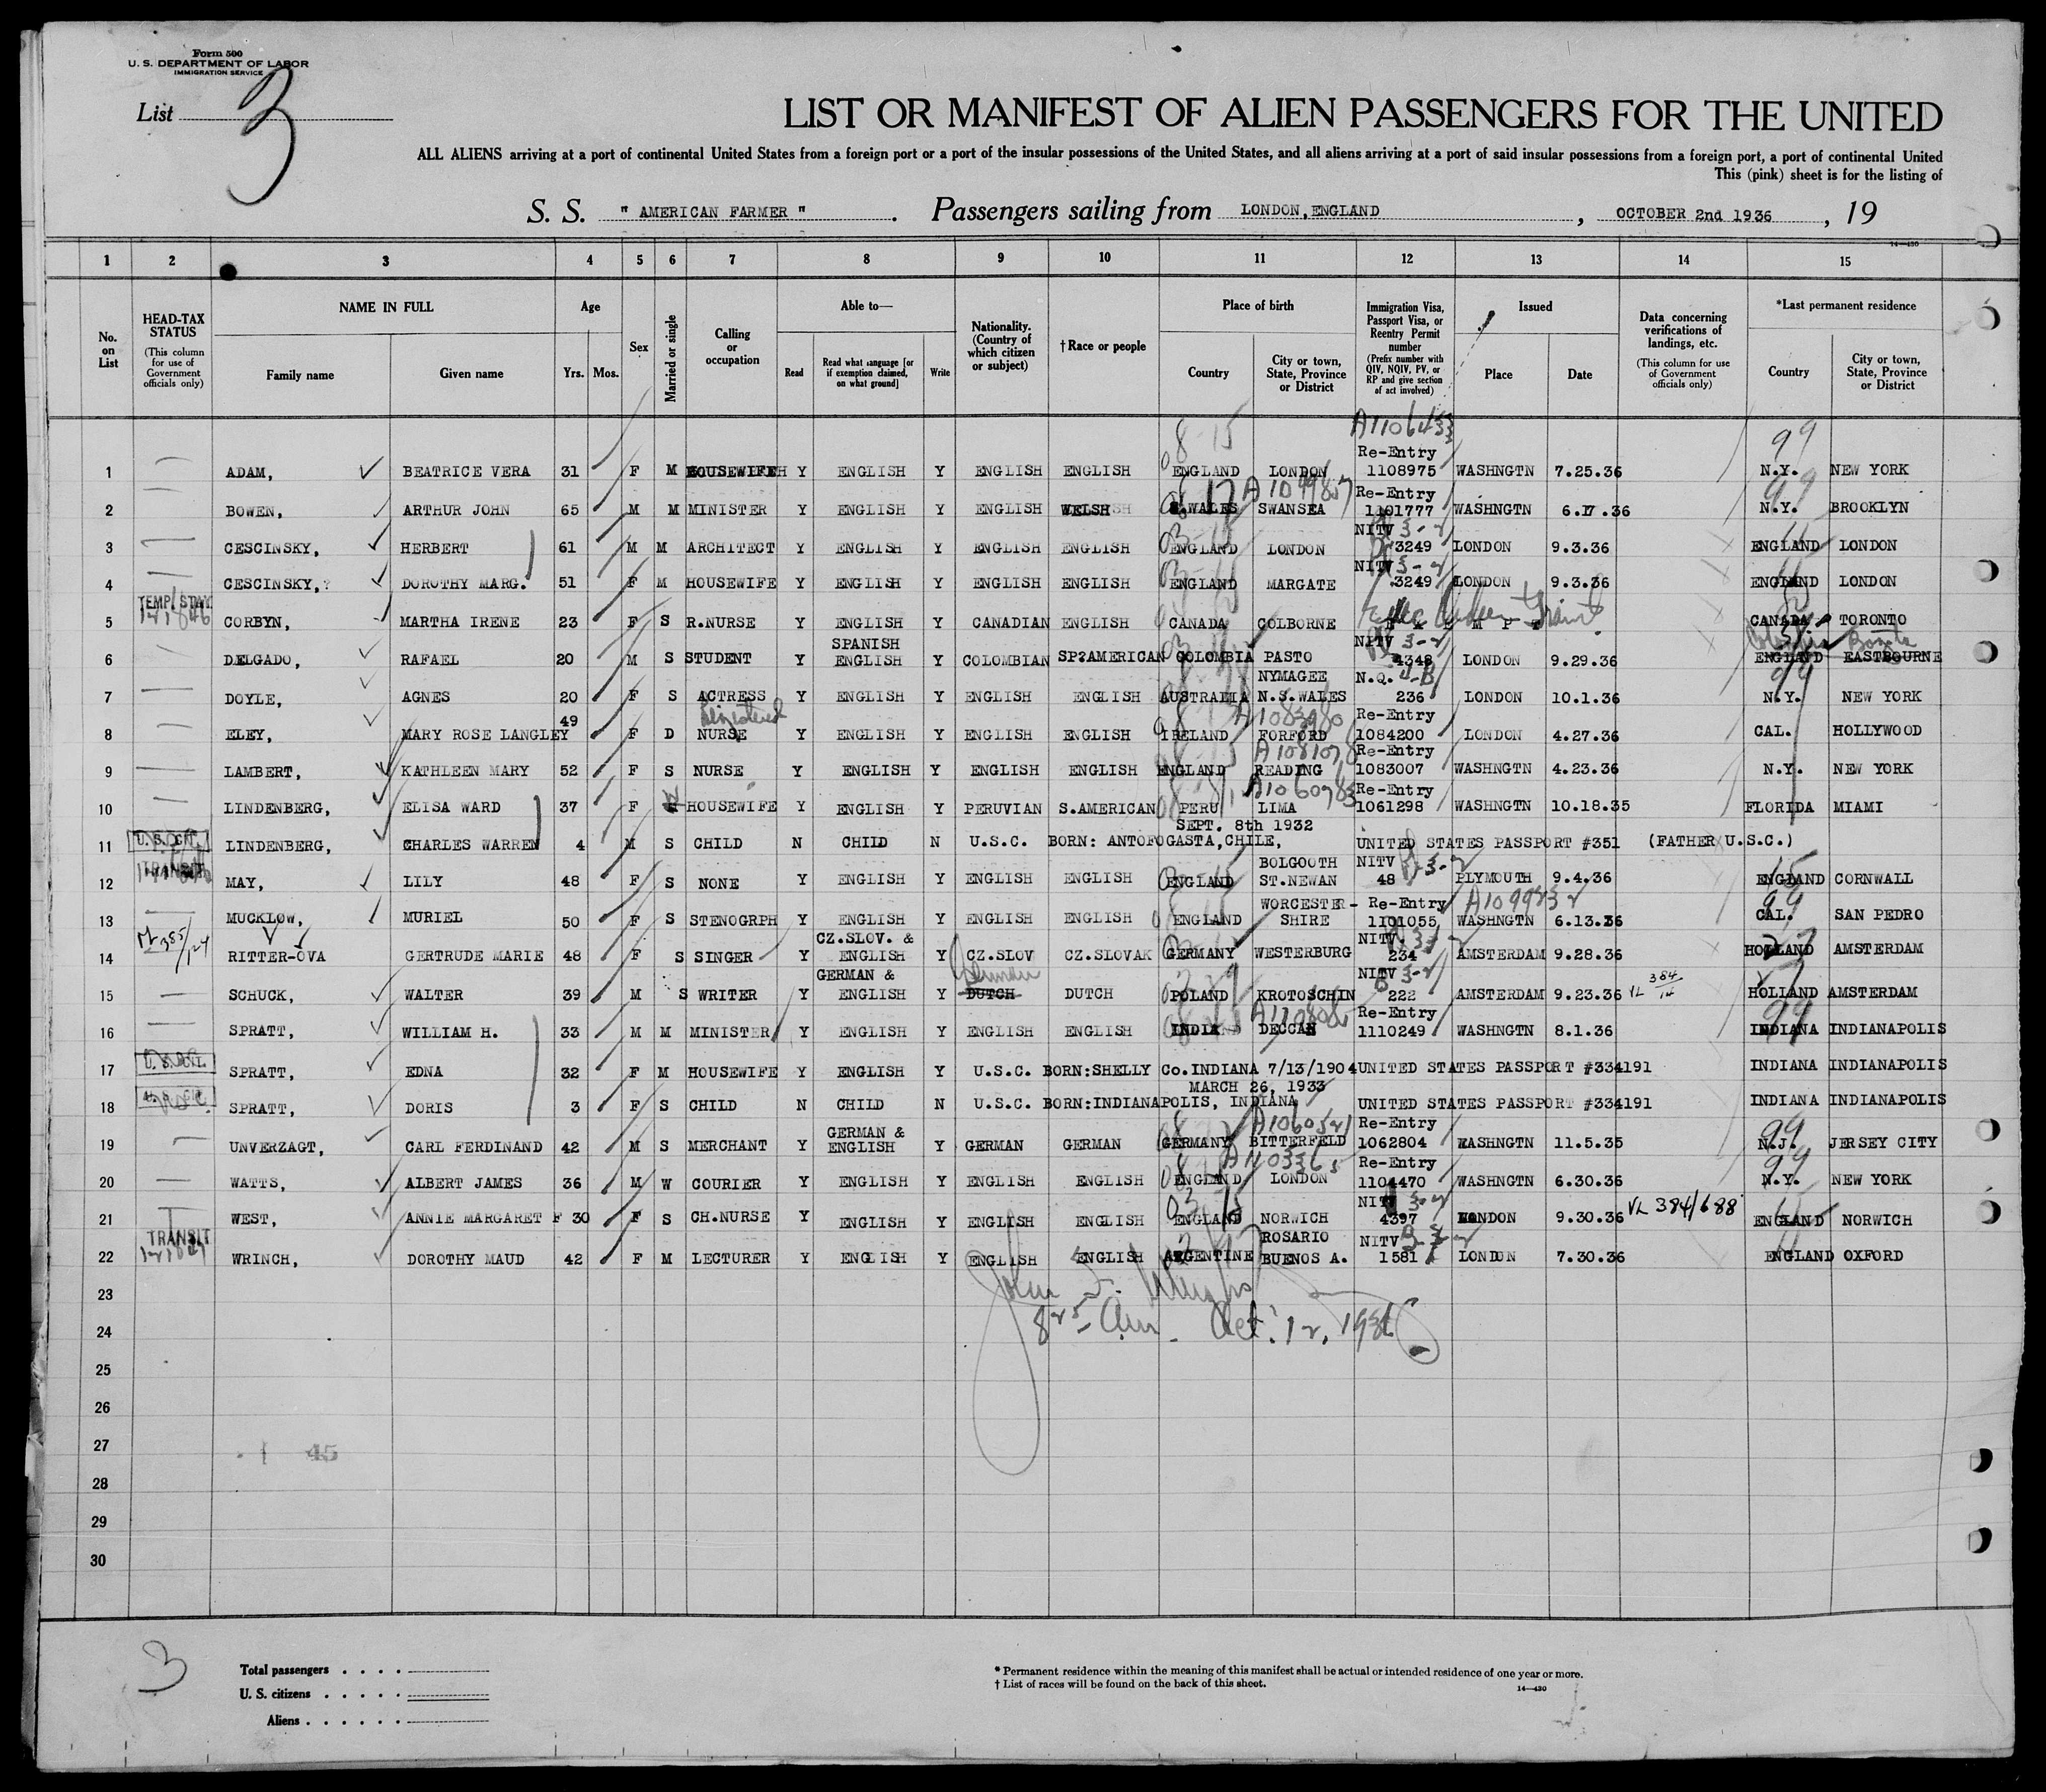 Form 500
U. S. DEPARTMENT OF LABOR
IMMIGRATION SERVICE
List 3
LIST OR MANIFEST OF ALIEN PASSENGERS FOR THE UNITED
ALL ALIENS arriving at a port of continental United States from a foreign port or a port of the insular possessions of the United States, and all aliens arriving at a port of said insular possessions from a foreign port, a port of continental United
This (pink) sheet is for the listing of
S. S. " AMERICAN FARMER " . Passengers sailing from LONDON, ENGLAND , OCTOBER 2nd 1936 , 19
14—430
1 2 3 4 5 6 7 8 9 10 11 12 13 14 15
No. on List
HEAD-TAX STATUS (This column for use of Government officials only)
NAME IN FULL Family name Given name
Age Yrs. Mos.
Sex
Married or single
Calling or occupation
Able to— Read Read what language [or if exemption claimed, on what ground] Write
Nationality. (Country of which citizen or subject)
†Race or people
Place of birth Country City or town, State, Province or District
Immigration Visa, Passport Visa, or Reentry Permit number (Prefix number with QIV, NQIV, PV, or RP and give section of act involved)
Issued Place Date
Data concerning verifications of landings, etc. (This column for use of Government officials only)
*Last permanent residence Country City or town, State, Province or District
08-15 A1106433 99
Re-Entry
1 ADAM, BEATRICE VERA 31 F M HOUSEWIFE Y ENGLISH Y ENGLISH ENGLISH ENGLAND LONDON 1108975 WASHNGTN 7.25.36 N.Y. NEW YORK
A1099857 Re-Entry 99
2 BOWEN, ARTHUR JOHN 65 M M MINISTER Y ENGLISH Y ENGLISH WELSH S.WALES SWANSEA 1101777 WASHNGTN 6.17.36 N.Y. BROOKLYN
NITV 3-2
3 CESCINSKY, HERBERT 61 M M ARCHITECT Y ENGLISH Y ENGLISH ENGLISH ENGLAND LONDON 3249 LONDON 9.3.36 ENGLAND LONDON
NITV 3-2
4 CESCINSKY, DOROTHY MARG. 51 F M HOUSEWIFE Y ENGLISH Y ENGLISH ENGLISH ENGLAND MARGATE 3249 LONDON 9.3.36 ENGLAND LONDON
TEMP. STAY
5 CORBYN, MARTHA IRENE 23 F S R.NURSE Y ENGLISH Y CANADIAN ENGLISH CANADA COLBORNE CANADA TORONTO
SPANISH NITV 3-2
6 DELGADO, RAFAEL 20 M S STUDENT Y ENGLISH Y COLOMBIAN SP?AMERICAN COLOMBIA PASTO 4348 LONDON 9.29.36 ENGLAND EASTBOURNE
NYMAGEE N.Q. 4-B 99
7 DOYLE, AGNES 20 F S ACTRESS Y ENGLISH Y ENGLISH ENGLISH AUSTRALIA N.S.WALES 236 LONDON 10.1.36 N.Y. NEW YORK
49 Registered A1083980 Re-Entry
8 ELEY, MARY ROSE LANGLEY F D NURSE Y ENGLISH Y ENGLISH ENGLISH IRELAND FORFORD 1084200 LONDON 4.27.36 CAL. HOLLYWOOD
Re-Entry
9 LAMBERT, KATHLEEN MARY 52 F S NURSE Y ENGLISH Y ENGLISH ENGLISH ENGLAND READING 1083007 WASHNGTN 4.23.36 N.Y. NEW YORK
A1060783 Re-Entry
10 LINDENBERG, ELISA WARD 37 F HOUSEWIFE Y ENGLISH Y PERUVIAN S.AMERICAN PERU LIMA 1061298 WASHNGTN 10.18.35 FLORIDA MIAMI
SEPT. 8th 1932
U.S.CIT.
11 LINDENBERG, CHARLES WARREN 4 M S CHILD N CHILD N U.S.C. BORN: ANTOFOGASTA,CHILE, UNITED STATES PASSPORT #351 (FATHER U.S.C.)
TRANSIT BOLGOOTH NITV 3-2
12 MAY, LILY 48 F S NONE Y ENGLISH Y ENGLISH ENGLISH ENGLAND ST.NEWAN 48 PLYMOUTH 9.4.36 ENGLAND CORNWALL
WORCESTER- Re-Entry A1099232 99
13 MUCKLOW, MURIEL 50 F S STENOGRPH Y ENGLISH Y ENGLISH ENGLISH ENGLAND SHIRE 1101055 WASHNGTN 6.13.36 CAL. SAN PEDRO
CZ.SLOV. & NITV.
14 RITTER-OVA GERTRUDE MARIE 48 F S SINGER Y ENGLISH Y CZ.SLOV CZ.SLOVAK GERMANY WESTERBURG 234 AMSTERDAM 9.28.36 HOLLAND AMSTERDAM
GERMAN & German NITV 3-2
15 SCHUCK, WALTER 39 M S WRITER Y ENGLISH Y DUTCH DUTCH POLAND KROTOSCHIN 222 AMSTERDAM 9.23.36 VL 384/14 HOLLAND AMSTERDAM
Re-Entry 99
16 SPRATT, WILLIAM H. 33 M M MINISTER Y ENGLISH Y ENGLISH ENGLISH INDIA DECCAN 1110249 WASHNGTN 8.1.36 INDIANA INDIANAPOLIS
U.S.CIT.
17 SPRATT, EDNA 32 F M HOUSEWIFE Y ENGLISH Y U.S.C. BORN:SHELLY Co.INDIANA 7/13/1904 UNITED STATES PASSPORT #334191 INDIANA INDIANAPOLIS
MARCH 26, 1933
U.S. CIT.
18 SPRATT, DORIS 3 F S CHILD N CHILD N U.S.C. BORN:INDIANAPOLIS, INDIANA UNITED STATES PASSPORT #334191 INDIANA INDIANAPOLIS
GERMAN & A1060521 Re-Entry 99
19 UNVERZAGT, CARL FERDINAND 42 M S MERCHANT Y ENGLISH Y GERMAN GERMAN GERMANY BITTERFELD 1062804 WASHNGTN 11.5.35 N.J. JERSEY CITY
Re-Entry 99
20 WATTS, ALBERT JAMES 36 M W COURIER Y ENGLISH Y ENGLISH ENGLISH ENGLAND LONDON 1104470 WASHNGTN 6.30.36 N.Y. NEW YORK
NITV 3-2
21 WEST, ANNIE MARGARET F 30 F S CH.NURSE Y ENGLISH Y ENGLISH ENGLISH ENGLAND NORWICH 4397 LONDON 9.30.36 VL 384/688 ENGLAND NORWICH
TRANSIT ROSARIO NITV 3-2
22 WRINCH, DOROTHY MAUD 42 F M LECTURER Y ENGLISH Y ENGLISH ENGLISH ARGENTINE BUENOS A. 1581 LONDON 7.30.36 ENGLAND OXFORD
23
24 Oct. 12, 1936
25
26
27 45
28
29
30
3
Total passengers . . . .
U. S. citizens . . . . .
Aliens . . . . . .
* Permanent residence within the meaning of this manifest shall be actual or intended residence of one year or more.
† List of races will be found on the back of this sheet.
14—430